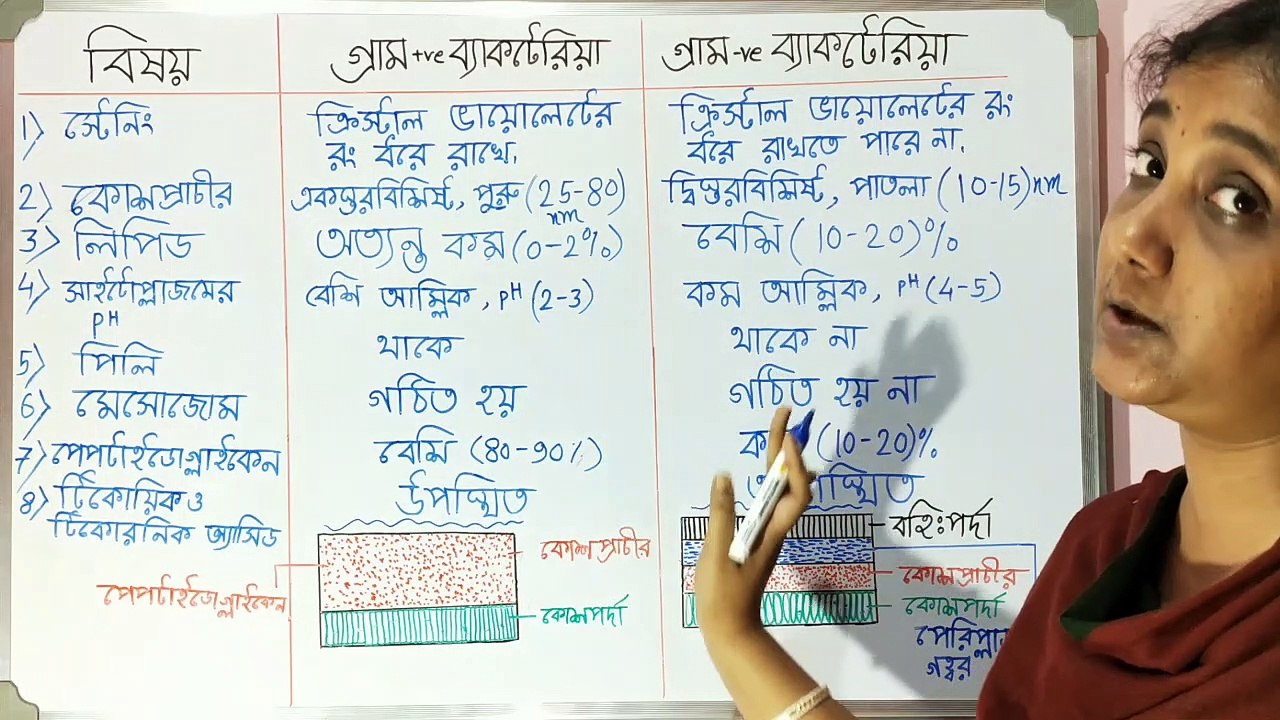 বিষয় গ্রাম +ve ব্যাকটেরিয়া গ্রাম -ve ব্যাকটেরিয়া
1) স্টেনিং ক্রিস্টাল ভায়োলেটের ক্রিস্টাল ভায়োলেটের রং
রং ধরে রাখে। ধরে রাখতে পারে না।
2) কোশপ্রাচীর একস্তরবিশিষ্ট, পুরু (25-80) দ্বিস্তরবিশিষ্ট, পাতলা (10-15)nm
nm
3) লিপিড অত্যন্ত কম (0-2%) বেশি (10-20)%
4) সাইটোপ্লাজমের বেশি আম্লিক, pH (2-3) কম আম্লিক, pH (4-5)
pH
5) পিলি থাকে থাকে না
6) মেসোজোম গঠিত হয় গঠিত হয় না
7) পেপটাইডোগ্লাইকেন বেশি (80-90%) (10-20)%
8) টিকোয়িক ও উপস্থিত
টিকোরনিক অ্যাসিড
বহিঃপর্দা
কোশপ্রাচীর কোশপ্রাচীর
পেপটাইডোগ্লাইকেন
কোশপর্দা কোশপর্দা
গহ্বর